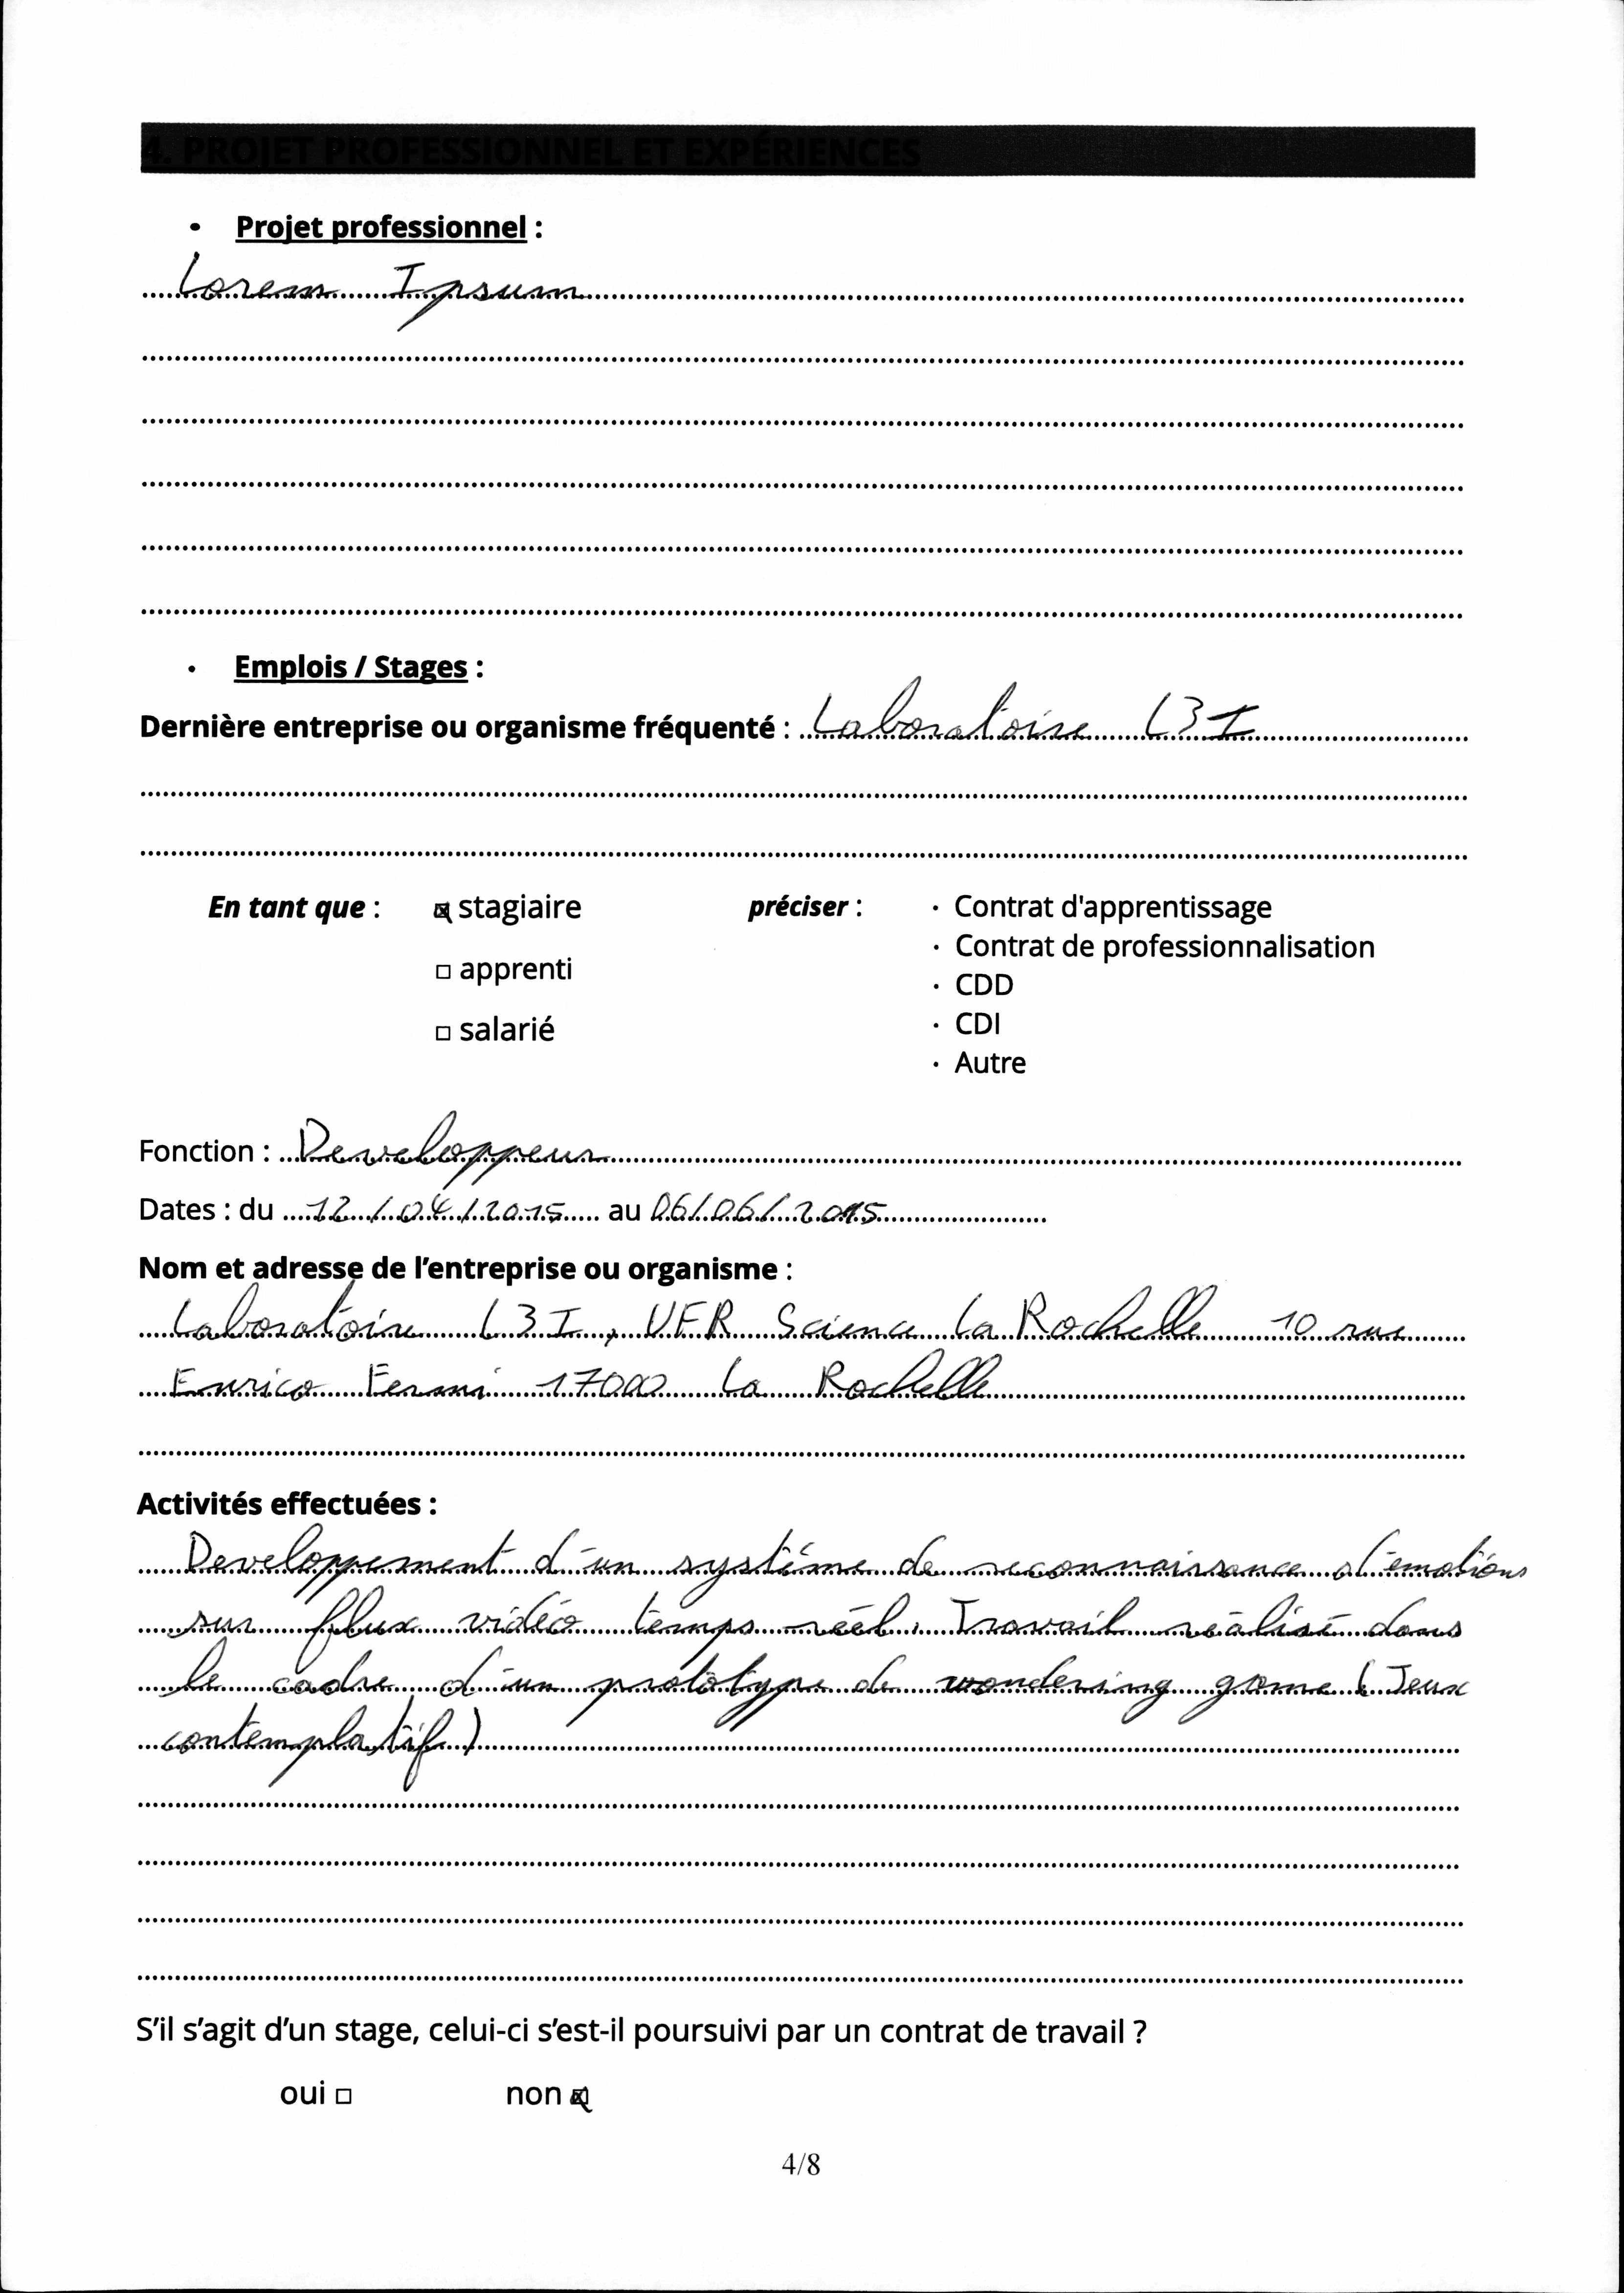 4. PROJET PROFESSIONNEL ET EXPÉRIENCES
• Projet professionnel :
Lorem Ipsum
• Emplois / Stages :
Dernière entreprise ou organisme fréquenté : Laboratoire L3I
En tant que : stagiaire préciser : · Contrat d'apprentissage
· Contrat de professionnalisation
apprenti
· CDD
salarié
· CDI
· Autre
Fonction : Developpeur
Dates : du 12/04/2015 au 06/06/2015
Nom et adresse de l'entreprise ou organisme :
Laboratoire L3I, UFR Science La Rochelle 10 rue
Enrico Fermi 17000 La Rochelle
Activités effectuées :
Developpement d'un système de reconnaissance d'emotions
sur flux vidéo temps réel. Travail réalisé dans
le cadre d'un prototype de wondering game (Jeux
contemplatif)
S'il s'agit d'un stage, celui-ci s'est-il poursuivi par un contrat de travail ?
oui non
4/8